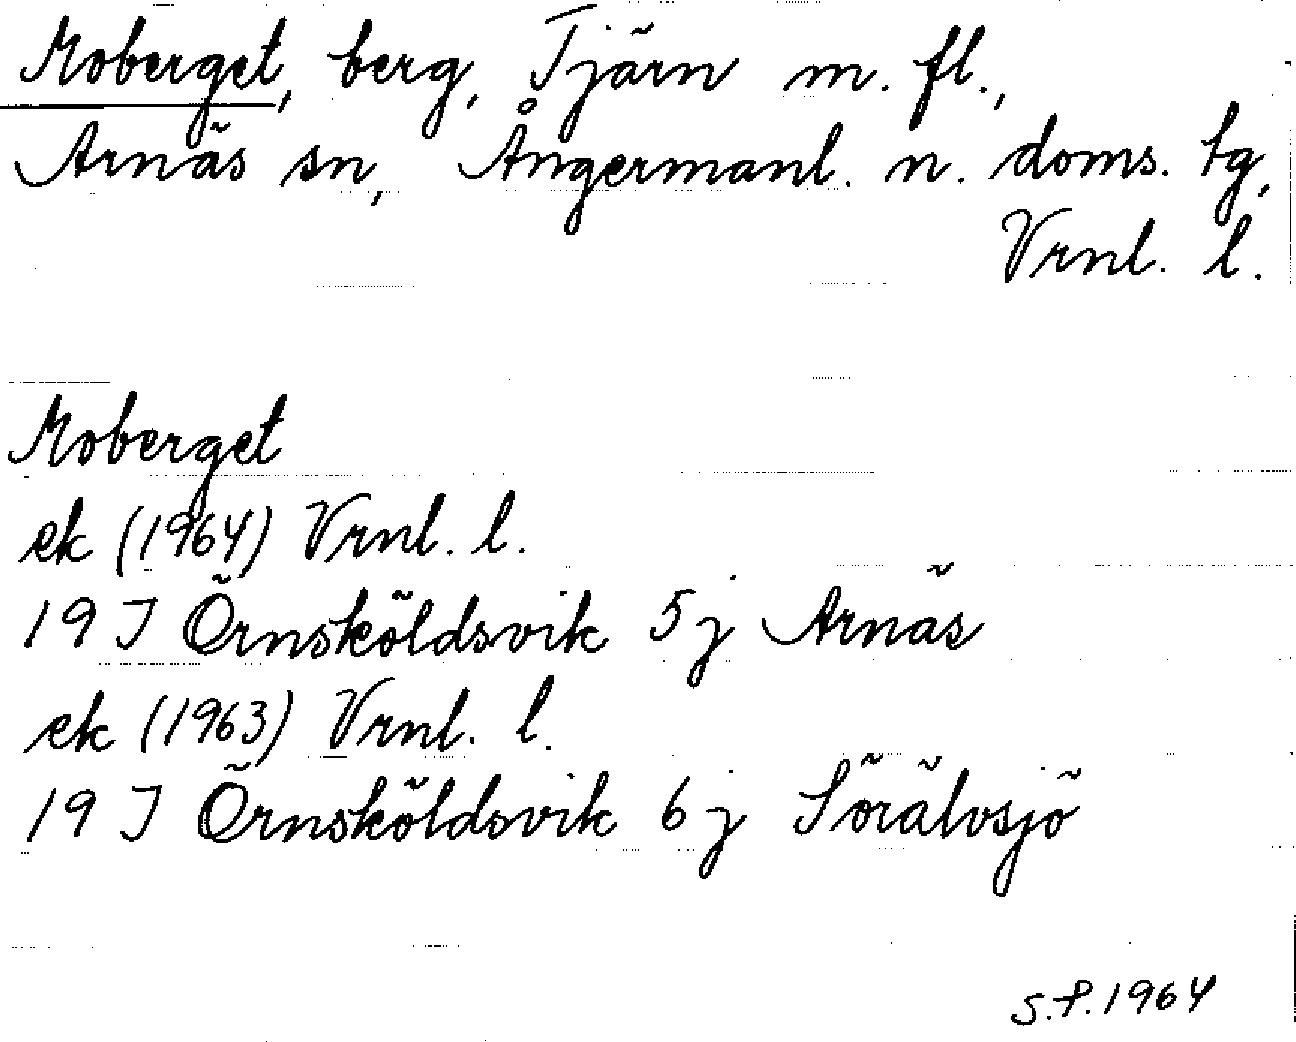 Moberget, berg, Tjärn m. fl.,
Arnäs sn, Ångermanl. n. doms. tg,
Vrnl. l.
Moberget
ek (1964) Vrnl. l.
19 I Örnsköldsvik 5 j Arnäs
ek (1963) Vrnl. l.
19 I Örnsköldsvik 6 j Sörälvsjö
S.P. 1964